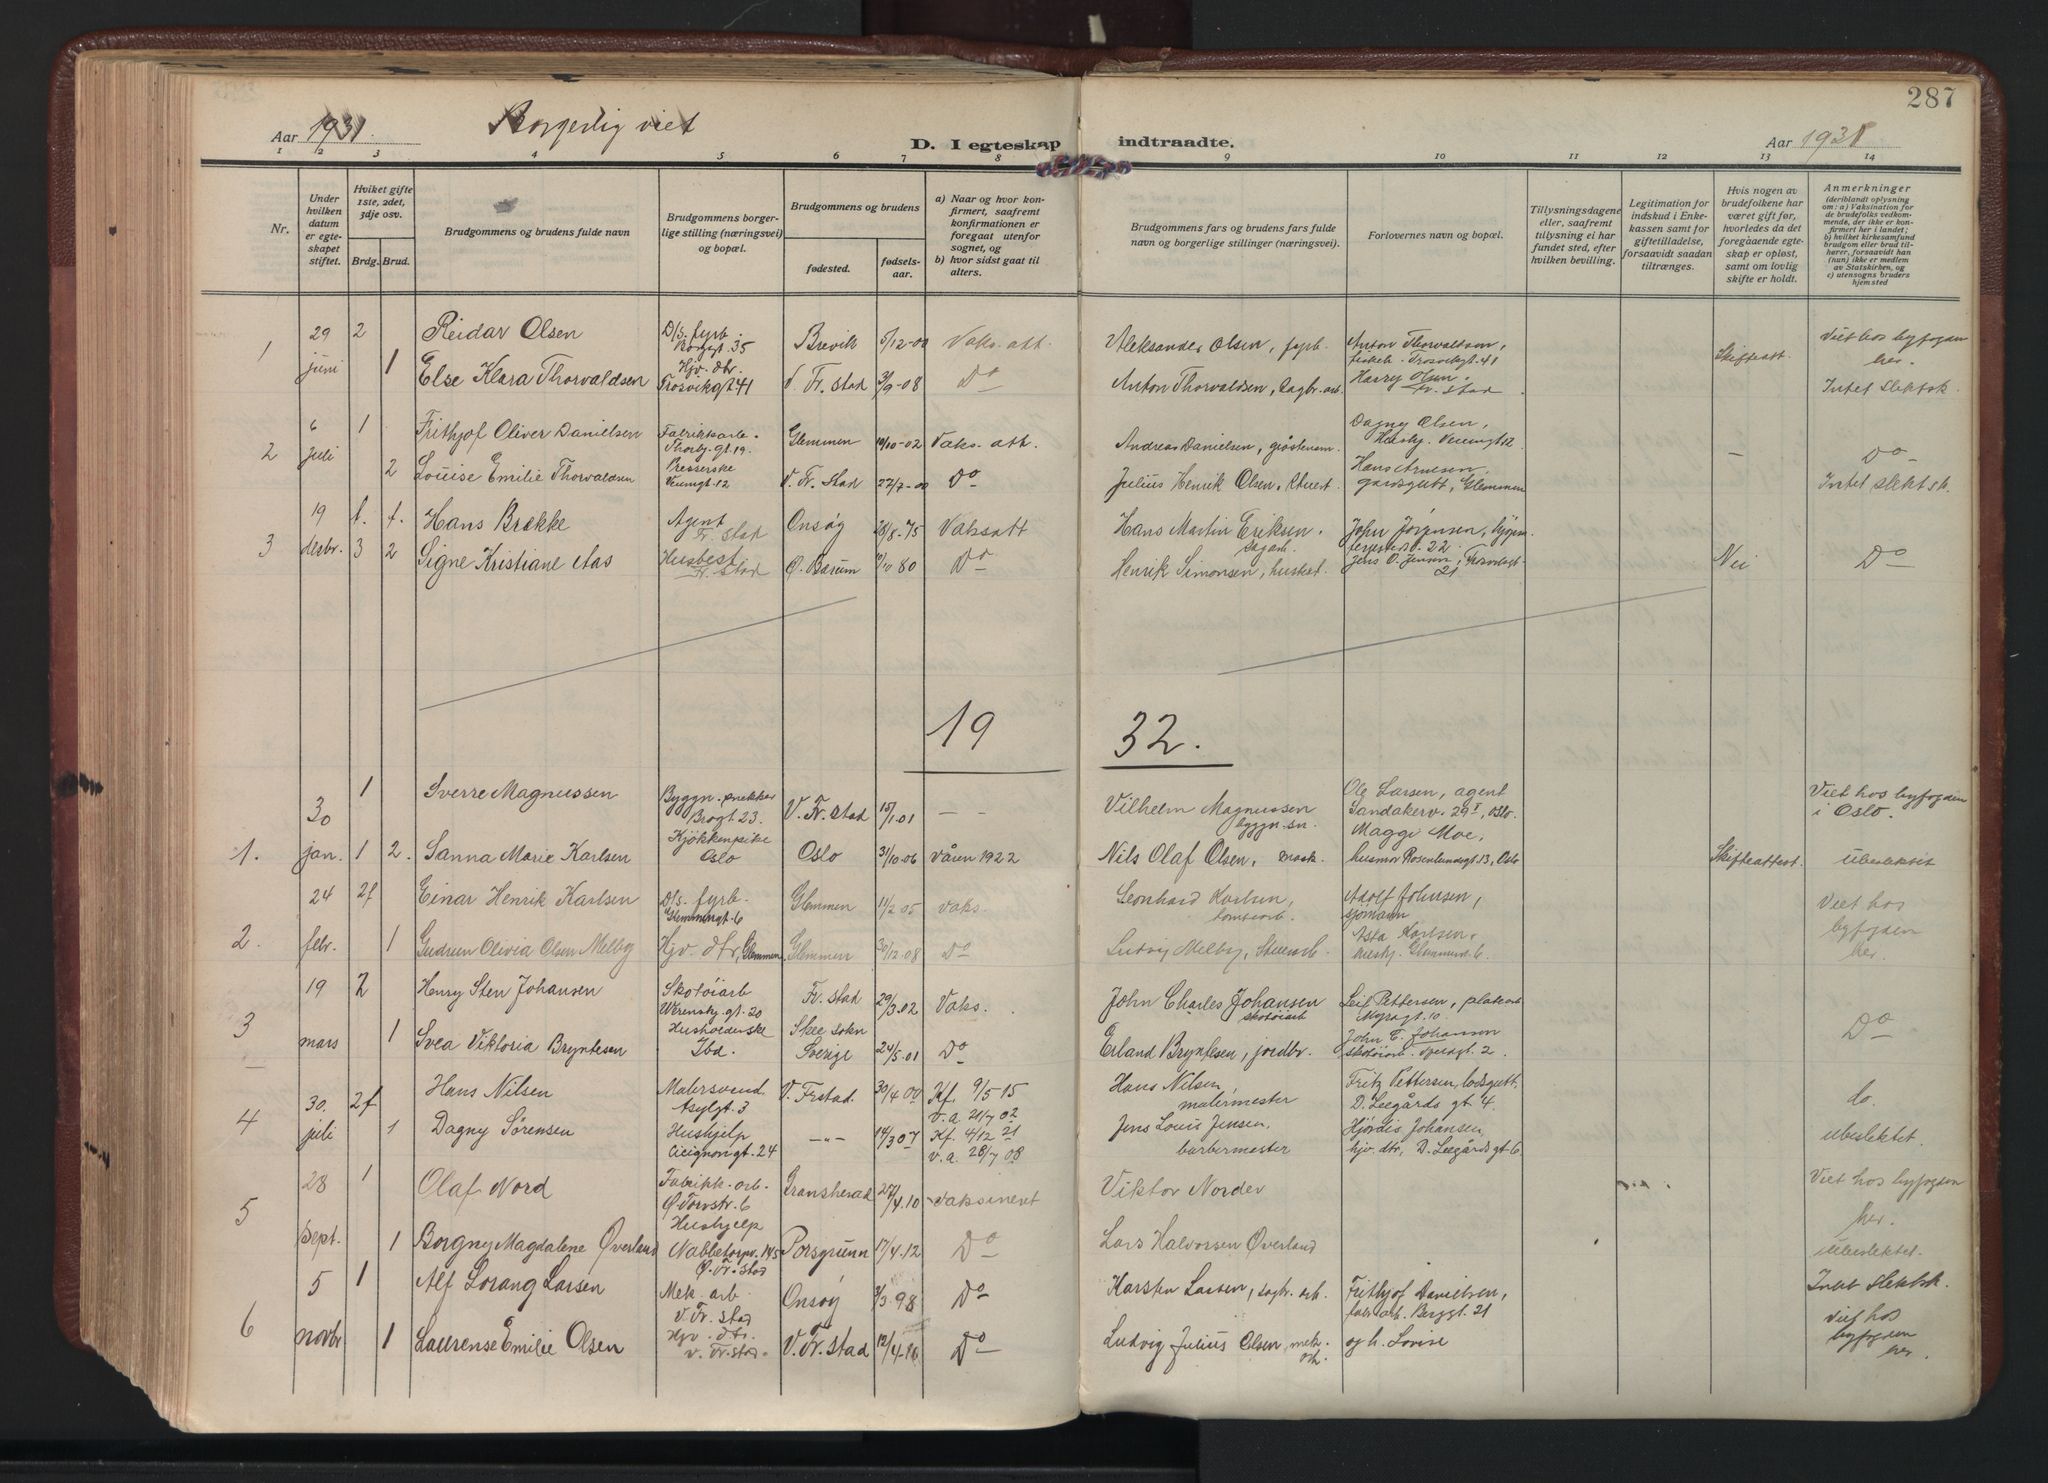 287
Aar 1931. Borgerlig viet D. I egteskap indtraadte. Aar 1931
1 2 3 4 5 6 7 8 9 10 11 12 13 14
Nr.
Under hvilken datum er egteskapet stiftet.
Hvilket gifte 1ste, 2det, 3dje osv.
Brdg. Brud.
Brudgommens og brudens fulde navn
Brudgommens borgerlige stilling (næringsvei) og bopæl.
Brudgommens og brudens
fødested.
fødselsaar.
a) Naar og hvor konfirmert, saafremt konfirmationen er foregaat utenfor sognet, og
b) hvor sidst gaat til alters.
Brudgommens fars og brudens fars fulde navn og borgerlige stillinger (næringsvei).
Forlovernes navn og bopæl.
Tillysningsdagene eller, saafremt tillysning ei har fundet sted, efter hvilken bevilling.
Legitimation for indskud i Enkekassen samt for giftetilladelse, forsaavidt saadan tiltrænges.
Hvis nogen av brudefolkene har været gift før, hvorledes da det foregaaende egteskap er opløst, samt om lovlig skifte er holdt.
Anmerkninger (deriblandt oplysning om: a) Vaksination for de brudefolks vedkommende, der ikke er konfirmert her i landet; b) hvilket kirkesamfund brudgom eller brud tilhører, forsaavidt han (hun) ikke er medlem av Statskirken, og c) utensogns bruders hjemsted
1 29 juni 2 Reidar Olsen D/s. fyrb. Borgegt. 35 Brevik 5/12-00 Vaks. att. Aleksander Olsen, fyrb. Anton Thorvaldsen, Trosvikgt 41 Skifteatt. Viet hos byfogden her.
1 Else Klara Thorvaldsen Hjv. dtr. Trosvikgt 41 V. Fr. stad 3/9-08 Do Anton Thorvaldsen, Dagbr. arb. Harry Olsen. Fr. stad Intet slektsk.
2 6 juli 1 Frithjof Oliver Danielsen Fabrikkarb. Thorbj. gt. 19. Glemmen 10/10-02 Vaks. att. Andreas Danielsen, Dagny Olsen, Husbj. Veumgt 12 Do
2 Louise Emilie Thorvaldsen Presserske Veumgt. 12 V. Fr. stad 22/7-00 Do Julius Henrik Olsen, Hans Arnesen gardsgutt, Glemmen — Intet slektsk.
3 19 desbr. f. 3 f. 2 Hans Brække Agent Fr. stad Onsøy 28/8-75 Vaksatt Hans Martin Eriksen. John Jørgensen,
Signe Kristiane Aas Husbest. Fr. stad Ø. Bærum 9/10 80 Do Henrik Simonsen, husket. Jens O. Jensen, 21 Nei Do
19 32.
1. 30 jan. 1 Sverre Magnussen Byggn. snekker Brogt. 23. V. Fr. stad 15/1.01 — — Vilhelm Magnussen byggn. sn. Ole Larsen, agent Sandakerv. 29 I, Oslo. Viet hos byfogden i Oslo.
1 2. Sanna Marie Karlsen Kjøkkenpike Oslo Oslo 31/10.06 våren 1922 Nils Olaf Olsen, mask. Maggi Moe, husmor Rosenlundsgt. 13, Oslo Skifteattest ubeslektet
2. 24 febr. 2f Einar Henrik Karlsen D/s. fyrb. Glemmengt. 6 Glemmen 11/2 05 vaks. Leonhard Karlsen, tomtearb. Adolf Johnsen, sjømann Viet hos byfogden her.
1 Gudrun Olivia Olsen Melby Hjv. dtr, Glemmen. Glemmen 30/12.08 Do Ludvig Melby, Stuearb. Asta Karlsen, Glemmend. 6.
3 19 mars 2 Henry Sten Johansen Skotøiarb Werenskj. gt. 20 Fr. stad 29/3.02 Vaks. John Charles Johansen skotøiarb Leif Pettersen, platearb Myragt. 10. Do
1 Svea Viktoria Bryntesen Husholderske Ibd. Skee sokn Sverige 24/5.01 Do Erland Bryntesen, jordbr. John E. Johanson skotøiarb. 2.
4 30. juli 2f Hans Nilsen Malersvend. Asylgt. 3 V. Frstad. 30/4 00 Kf. 9/5 15 v. a. 21/7 02 Hans Nilsen, malermester Fritz Pettersen, badsgutt, D. Leegårds gt. 4. do.
1 Dagny Sørensen Hushjelp Cicignongt. 24 —"— 14/3 07 Kf. 4/12 21 v. a. 28/7 08 Jens Louis Jensen, barbermester Hjørdis Johansen, hjv. dtr, D. Leegårdsgt 6. ubeslektet.
5 28 sept. 1 Olaf Nord Fabrikk. arb. Ø. Torvstr. 6 Gransherad 27/4.10 vaksineret Viktor Norder Viet hos byfogden her.
1 Borgny Magdalene Øverland Hushjelp Nabbetorpv. 145 Ø. Fr. stad Porsgrunn 17/4.12 Do Lars Halvorsen Øverland ubeslektet.
6 5 novbr 1 Alf Lorang Larsen Mek. arb V. Fr. stad Onsøy 3/3.98 Do Karsten Larsen, dagbr. arb. Frithjof Danielsen, fabr. arb. Borggt. 21 Intet slektsk.
1 Laurense Emilie Olsen Hjv. dtr. v. Fr. stad. V. Fr. stad 12/4-10 Do Ludvig Julius Olsen, mek. arb. og h. Lovise Viet hos byfogden her.